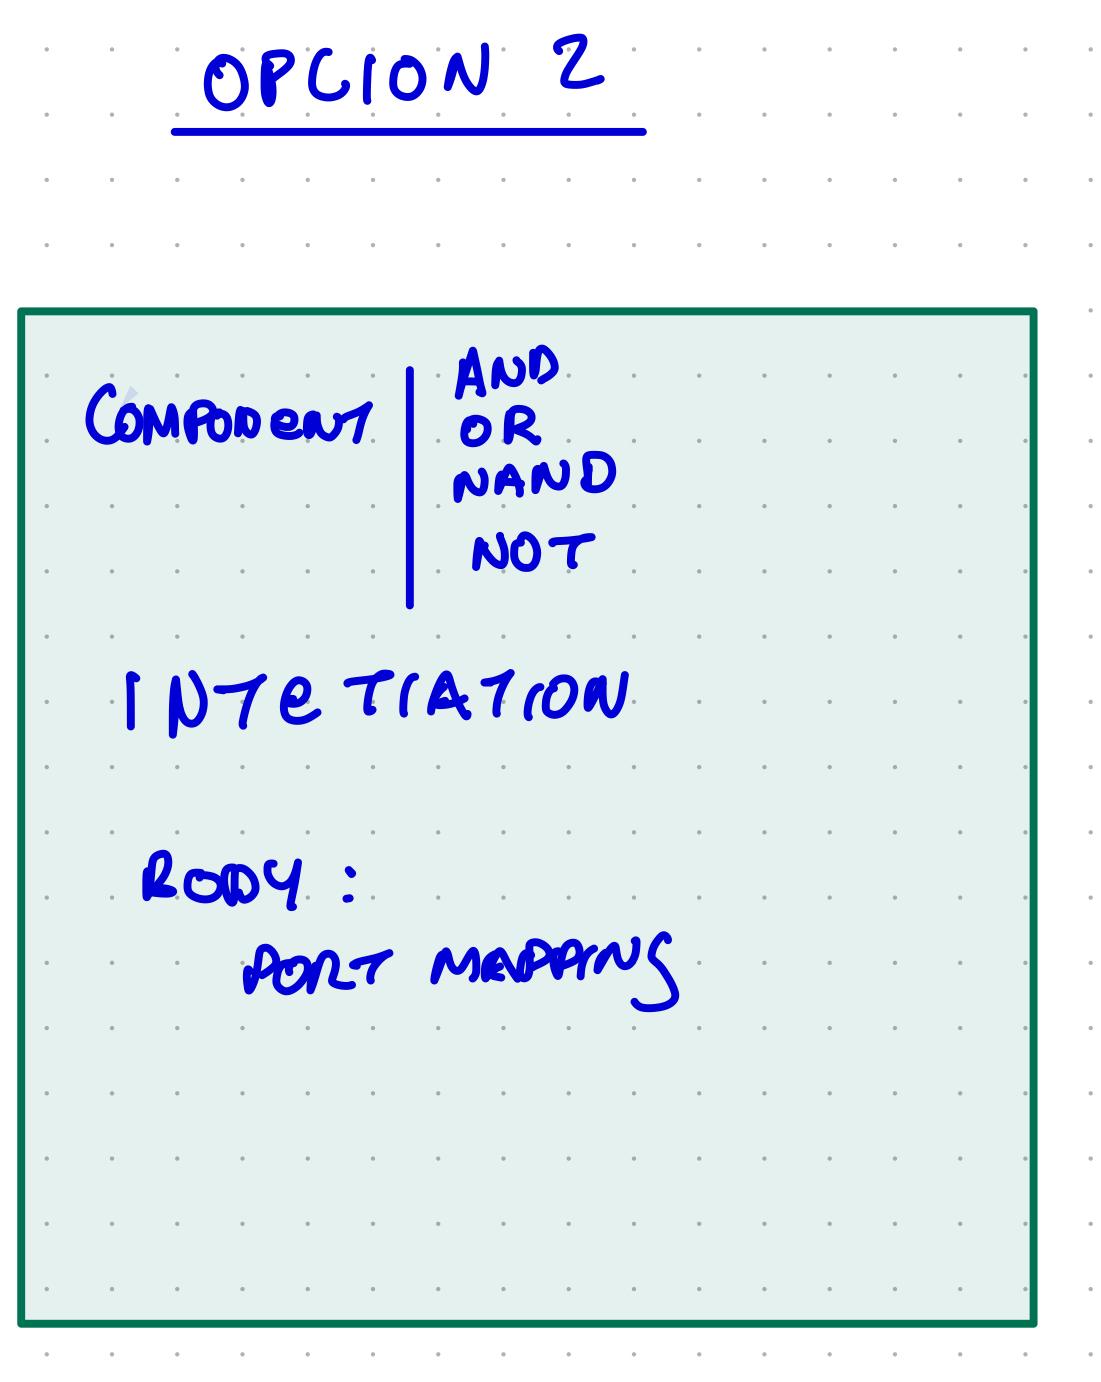 OPCION 2
COMPONENT
AND
OR
NAND
NOT
INTETIATION
BODY :
PORT MAPPING